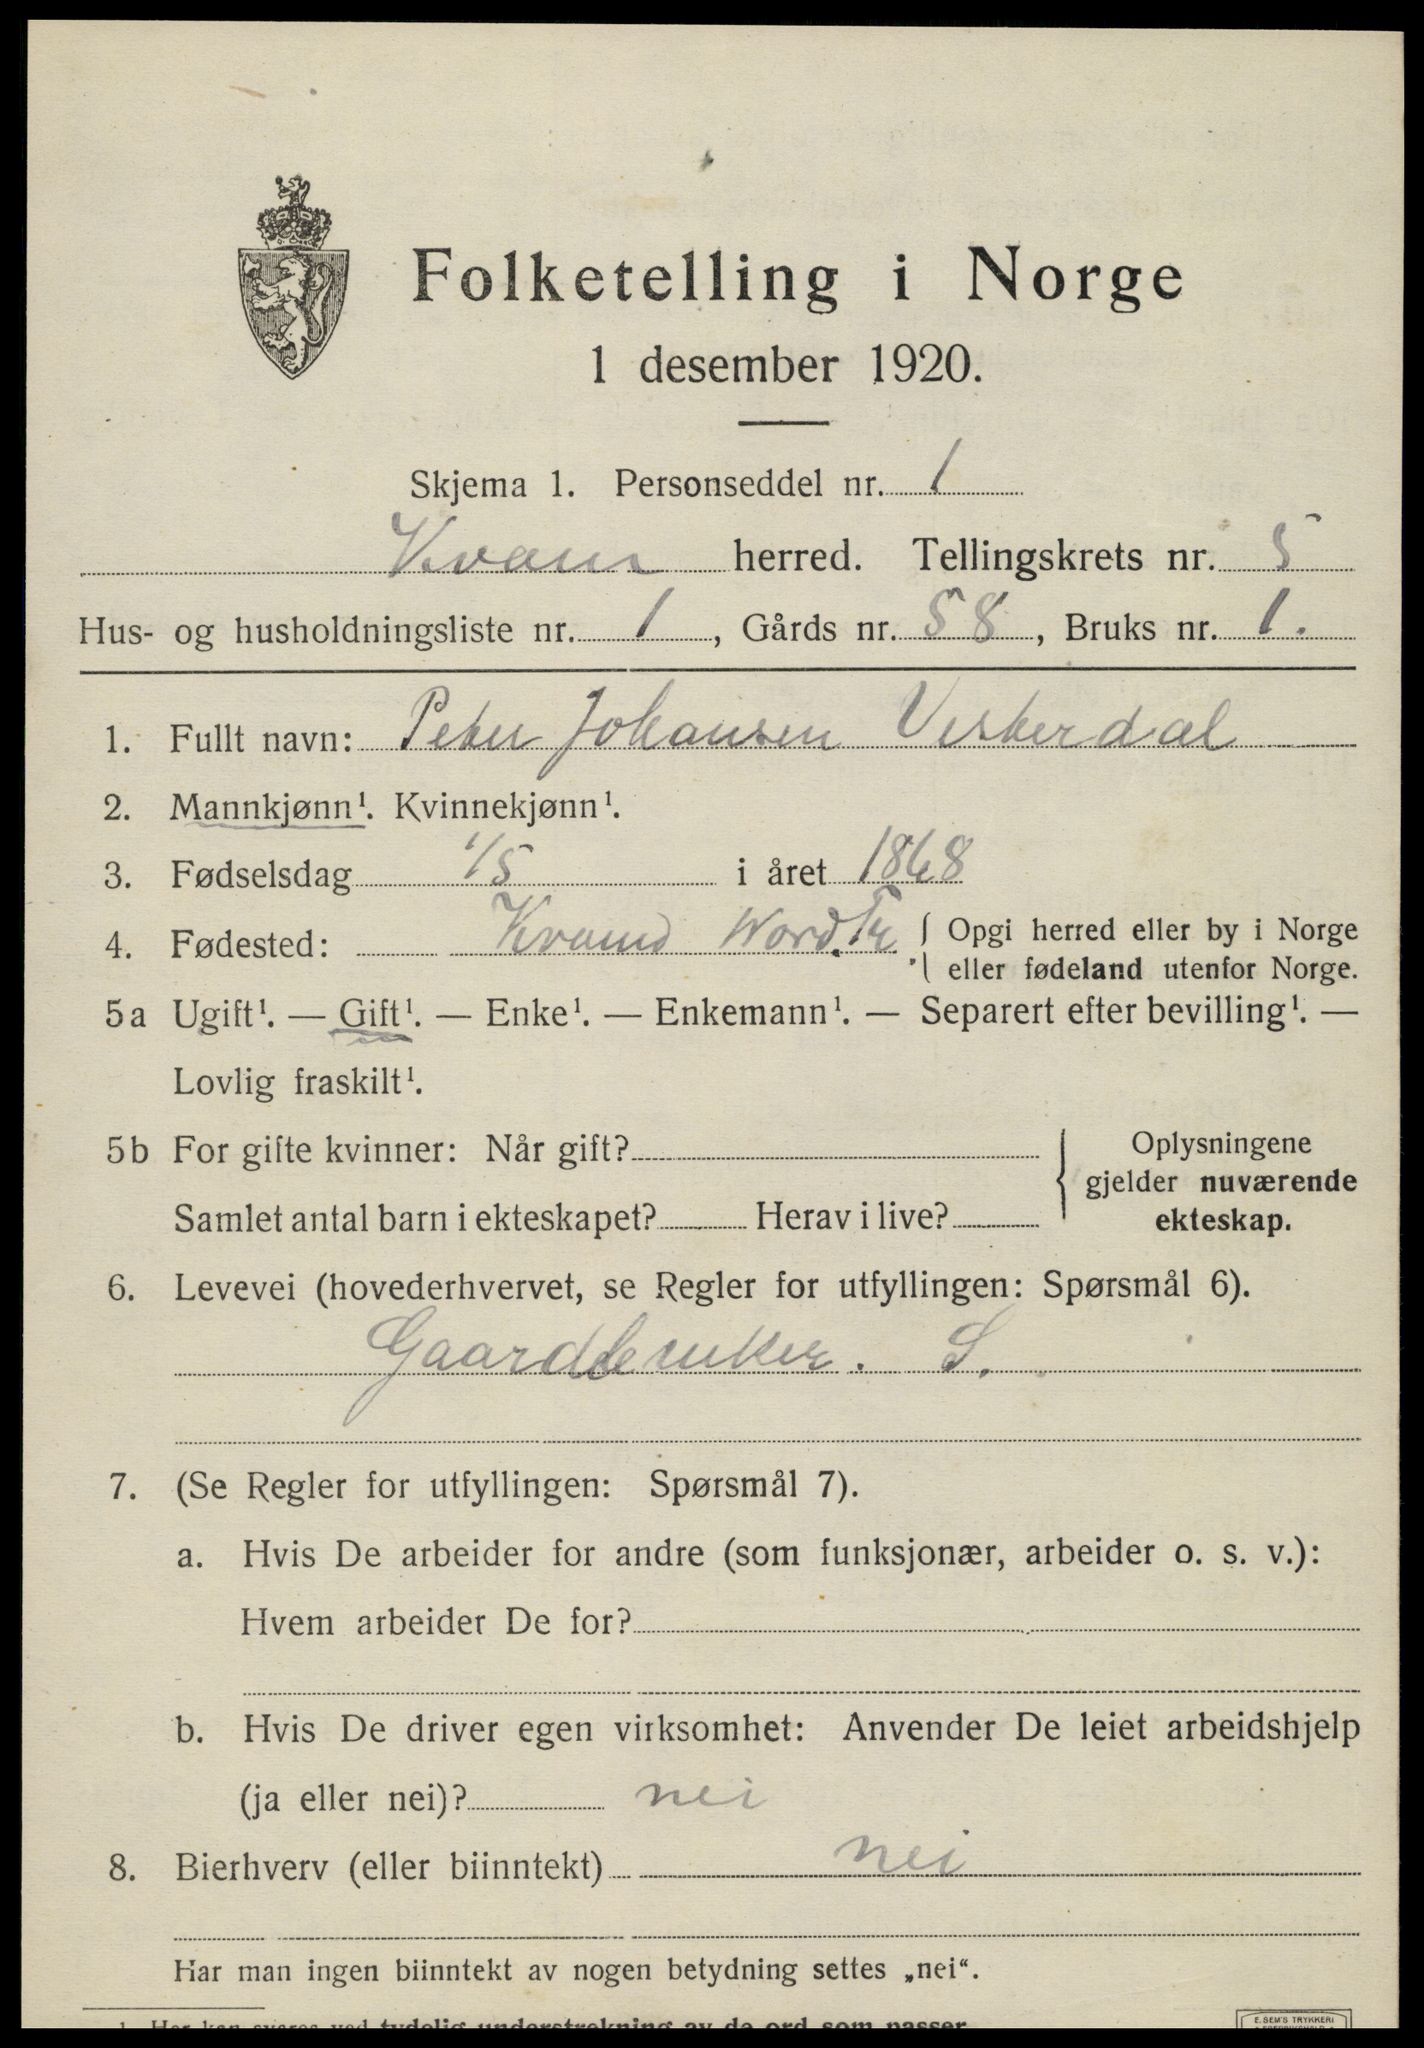 Folketelling i Norge
1 desember 1920.
Skjema 1. Personseddel nr. 1
Kvam herred. Tellingskrets nr. 5
Hus- og husholdningsliste nr. 1, Gårds nr. 58, Bruks nr. 1.
1. Fullt navn: Peter Johansen Vesterdal
2. Mannkjønn¹. Kvinnekjønn¹.
3. Fødselsdag 1/5 i året 1868
4. Fødested: Kvam Nord. Tr. { Opgi herred eller by i Norge
eller fødeland utenfor Norge.
5a Ugift¹. — Gift¹. — Enke¹. — Enkemann¹. — Separert efter bevilling¹. —
Lovlig fraskilt¹.
5b For gifte kvinner: Når gift? { Oplysningene
gjelder nuværende
Samlet antal barn i ekteskapet? Herav i live? ekteskap.
6. Levevei (hovederhvervet, se Regler for utfyllingen: Spørsmål 6).
Gaardbruker. S.
7. (Se Regler for utfyllingen: Spørsmål 7).
a. Hvis De arbeider for andre (som funksjonær, arbeider o. s. v.):
Hvem arbeider De for?
b. Hvis De driver egen virksomhet: Anvender De leiet arbeidshjelp
(ja eller nei)? nei
8. Bierhverv (eller biinntekt) nei
Har man ingen biinntekt av nogen betydning settes „nei“.
1 Her kan svares ved tydelig understrekning av de ord som passer.
E. SEM'S TRYKKERI
FREDRIKSHALD